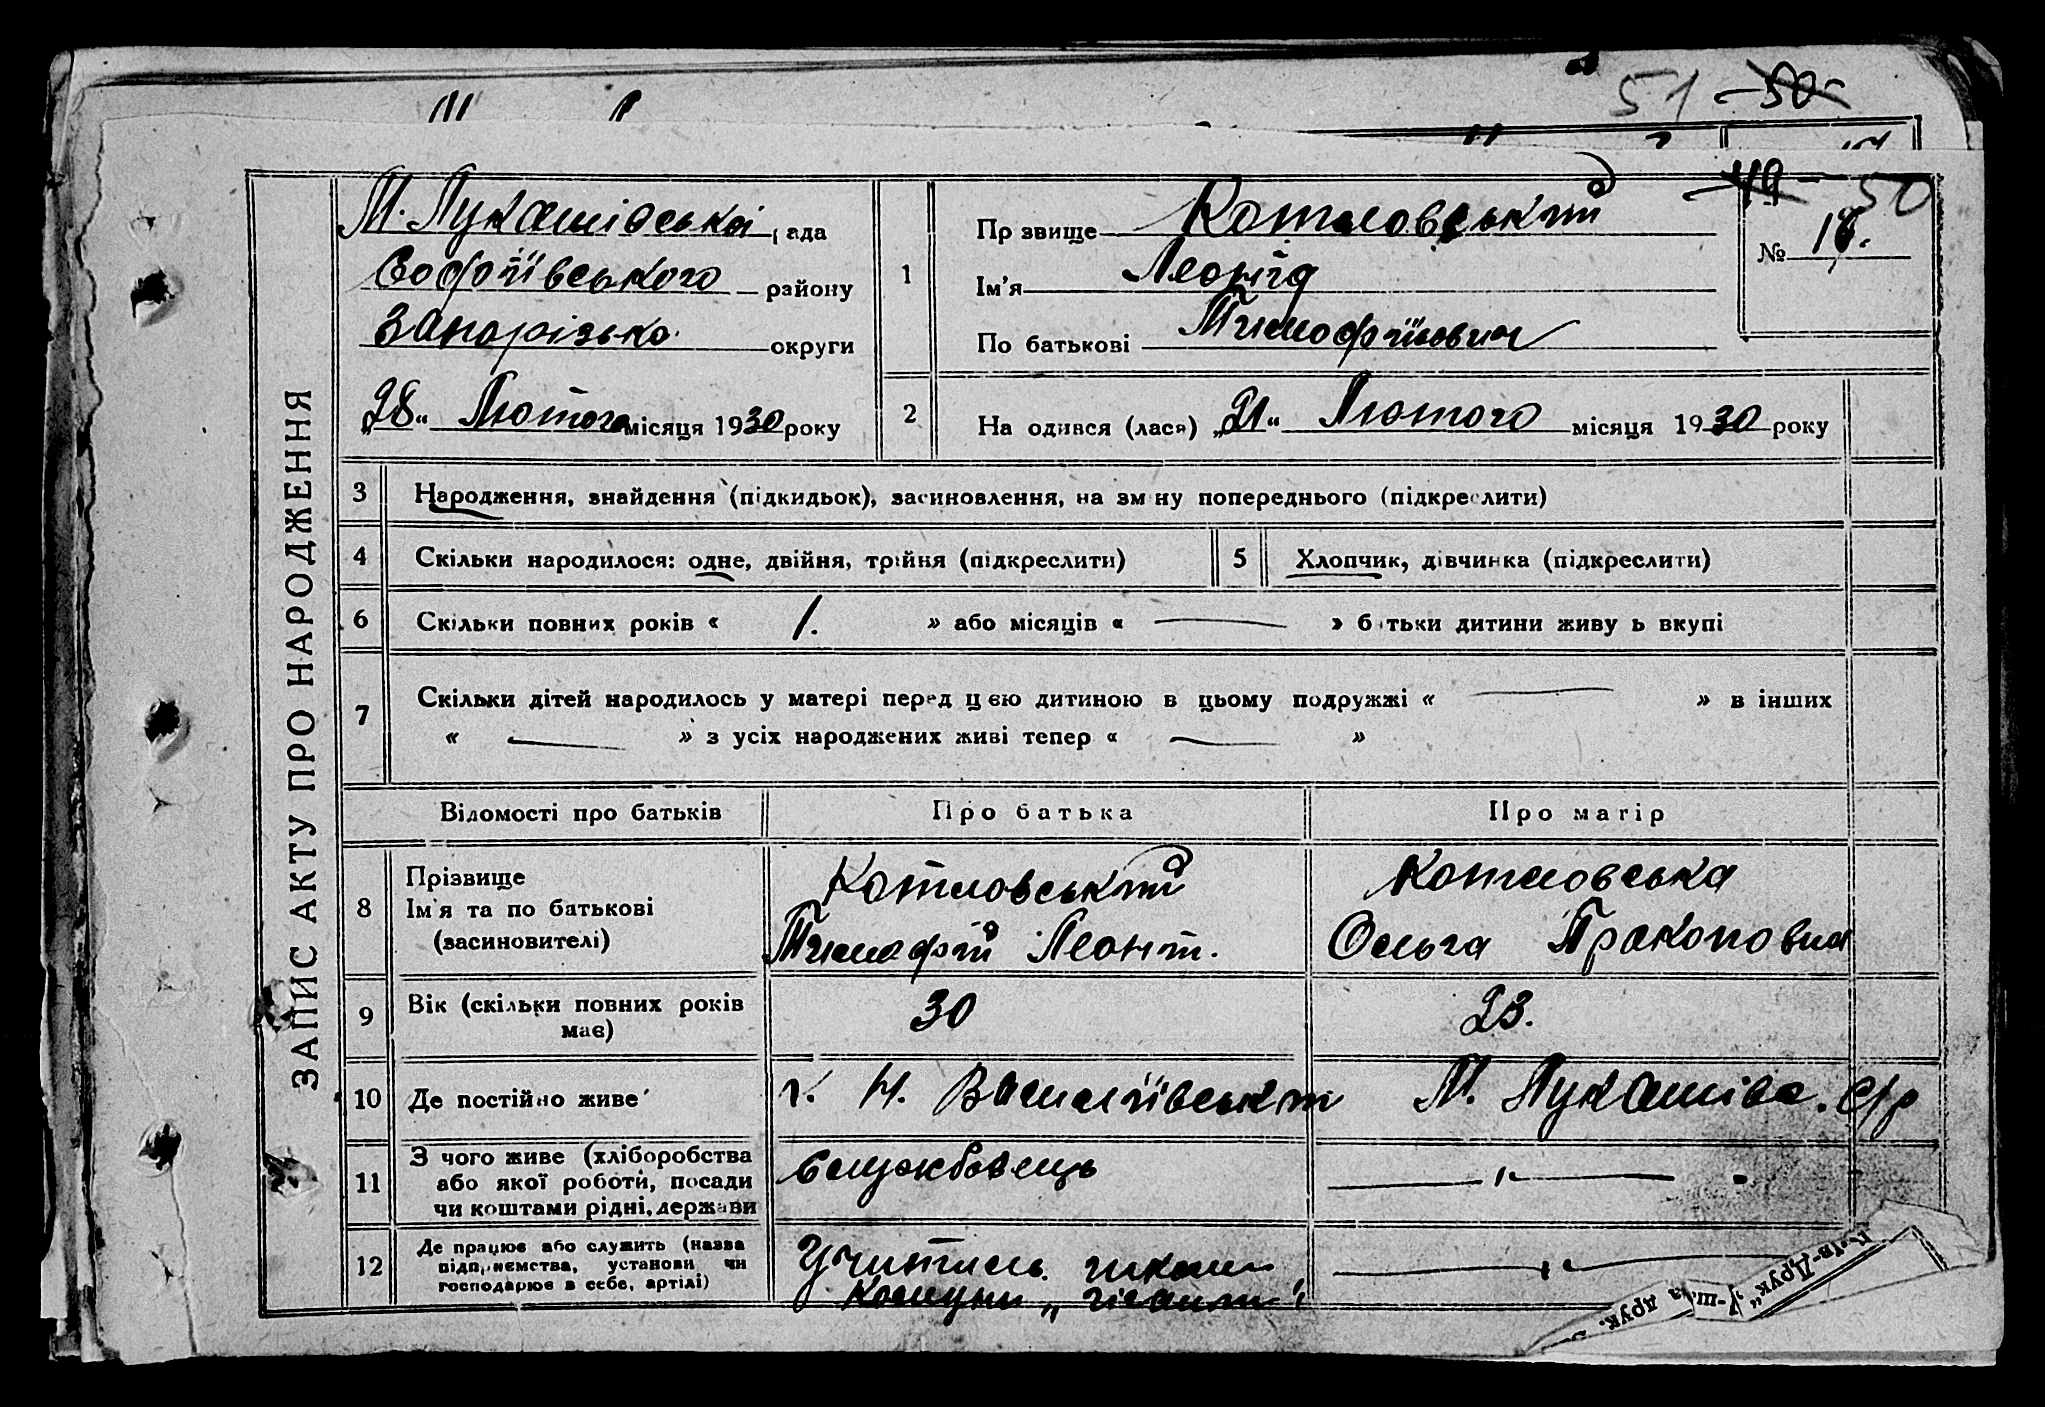 51 -50-
49- 50
ЗАПИС АКТУ ПРО НАРОДЖЕННЯ
М. Лукашівської рада
Софіївського району
Запорізько. округи
„28“ Лютого місяця 1930 року
1
Прізвище Котловський
Ім’я Леонід
По батькові Тимофійович
№ 16.
2
На одився (лася) „21“ Лютого місяця 1930 року
3 Народження, знайдення (підкидьок), засиновлення, на зміну попереднього (підкреслити)
4 Скільки народилося: одне, двійня, трійня (підкреслити)
5 Хлопчик, дівчинка (підкреслити)
6 Скільки повних років « 1. » або місяців « — » батьки дитини живуть вкупі
7 Скільки дітей народилось у матері перед цією дитиною в цьому подружжі « — » в інших
« — » з усіх народжених живі тепер « — »
Відомості про батьків Про батька Про матір
8 Прізвище
Ім’я та по батькові
(засиновителі)
Котловський
Тимофій Леонт.
Котловська
Ольга Прокоповна
9 Вік (скільки повних років має) 30 23.
10 Де постійно живе с. Н. Василівський М. Лукашівс. с/р
11 З чого живе (хліборобства
або якої роботи, посади
чи коштами рідні, держави
Службовець — „ —
12 Де працює або служить (назва
підприємства, установи чи
господарює в себе, артілі)
Учитель школи
Комуни „гігант“
— „ —